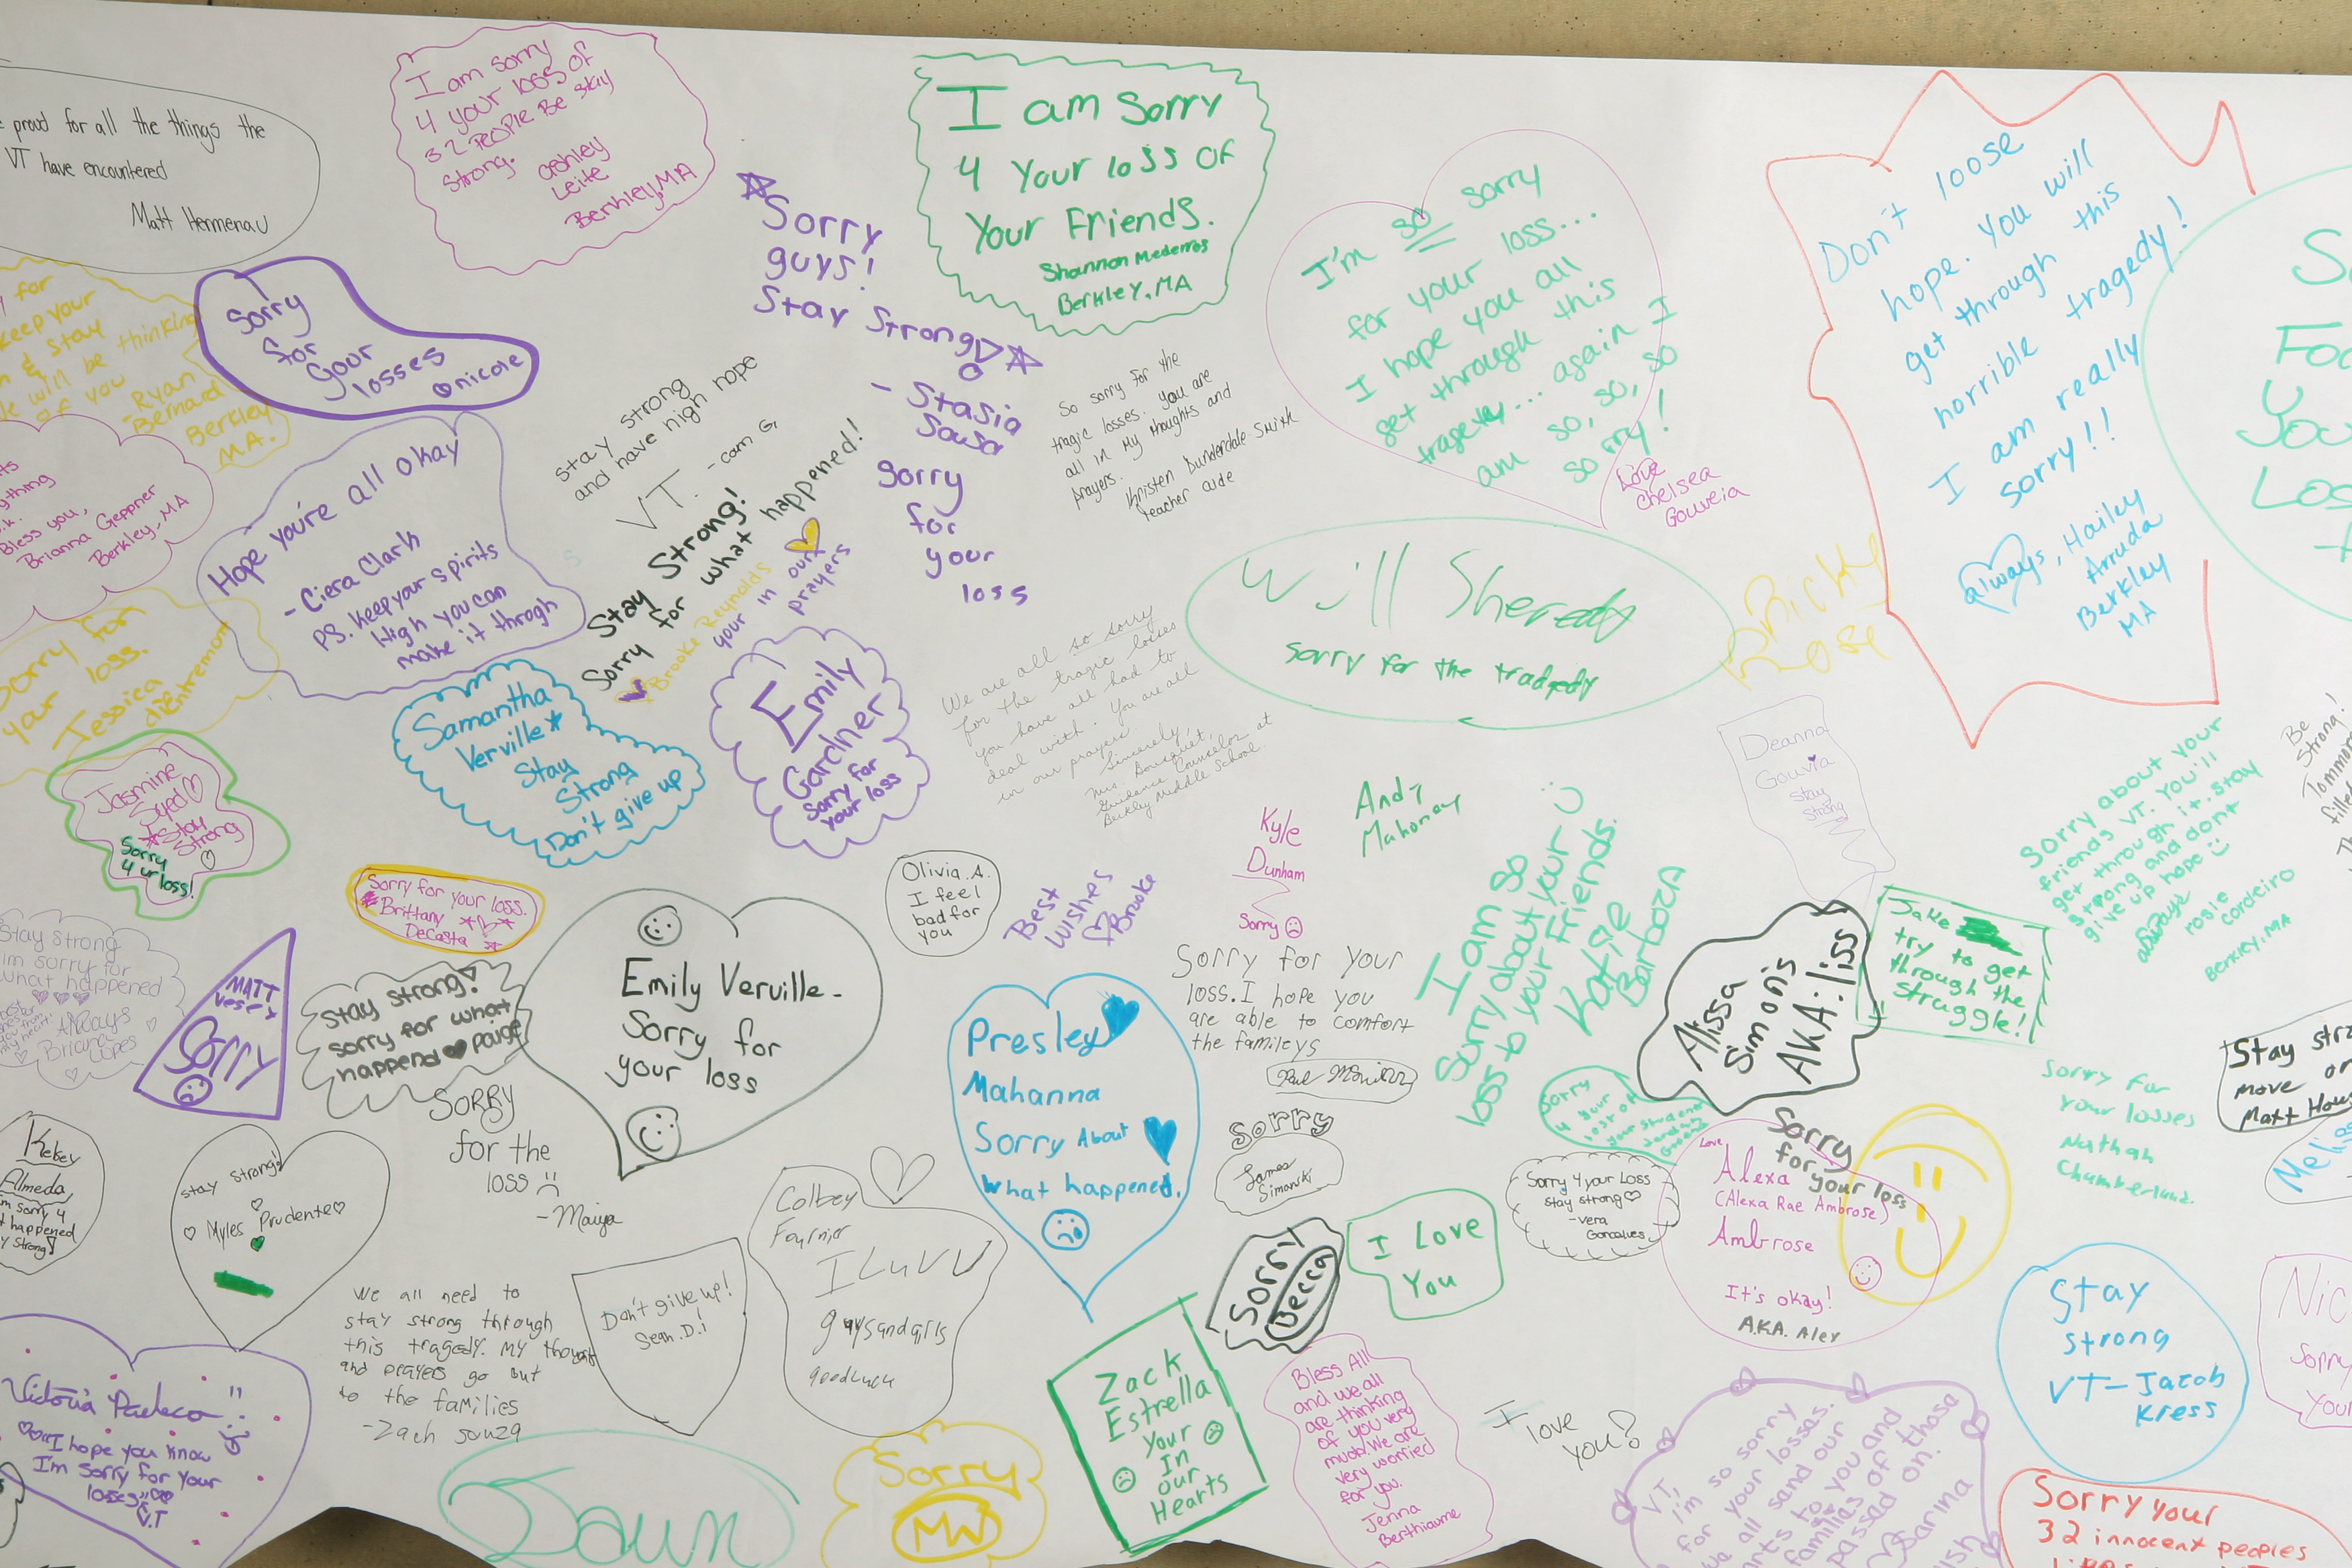 proud for all the things the
VT have encountered
Matt Hermenau
I am sorry
4 your loss of
32 PEOPLE Be stay
strong.
ashley
Leite
Berkley, MA
I am Sorry
4 Your loss of
Your Friends.
Shannon Mederros
Berkley, MA
Sorry
guys!
Stay Strong
- Stasia
Sousa
I'm so sorry
for your loss...
I hope you all
get through this
tragety... again I
am so, so, so
sorry!
Love
Chelsea
Gouveia
Don't loose
hope. You will
get through this
horrible tragedy!
I am really
sorry!!
always, Hailey
Arruda
Berkley
MA
for
keep your
& stay
will be thinking
of you
-Ryan
Bernard
Berkley
MA.
Sorry
for
your
losses
nicole
Bless you,
Brianna Geppner
Berkley, MA
Hope you're all okay
- Ciera Clark
PS. keep your spirits
High you can
make it throgh
stay strong
and have high hope
VT. - cam G.
Stay Strong!
Sorry for what happened!
Brooke Reynolds
your in our
prayers
Sorry
for
your
loss
So sorry for the
tragic losses. you are
all in my thoughts and
prayers.
Kristen Dunderdale-Smith
teacher aide
We are all so sorry
for the tragic losses
you have all had to
deal with. You are all
in our prayers.
Sincerely,
Mrs. Bousquet,
Guidance Counselor at
Berkley Middle School.
Will Sheredy
sorry for the tradgedy
Ricky
Rose
Sorry for
your loss.
Jessica
dientremont
Samantha
Verville*
Stay
Strong
Don't give up
Emily
Gardner
Sorry for
your loss
Deanna
Gouvia
stay
strong
Be
Strong!
Sorry about your
friends VT. You'll
get through it. stay
strong and dont
give up hope
always
rosie
cordeiro
Berkley, MA
Jasmine
Syed
*Stay
Strong
Sorry
4 ur loss!
Sorry for your loss.
Brittany
DeCosta
Olivia. A.
I feel
bad for
you
Best
Wishes
Brooke
Kyle
Dunham
Sorry
Andy
Mahoney
I am So
Sorry about your
loss to your Friends.
Katie
BarbozA
Alissa
Simonis
AKA: liss
Jake
try to get
through the
struggle!
Stay strong
im sorry for
what happened
Always
Briana
Lopes
MATT
Vesey
Sorry
Stay strong!
sorry for what
happend paige
Emily Verville-
Sorry for
your loss
Presley
Mahanna
Sorry About
what happened.
Sorry for your
loss. I hope you
are able to comfort
the familys
Sorry
James
Simanski
Sorry
4 your
lost of
your students
Sorry
for your loss
Sorry for
your losses
Nathan
Chamberland.
Stay
move
Matt
Kelsey
Almeda,
sorry 4
happened
strong!
stay strong!
Myles Prudente
SORRY
for the
loss
-Maiya
Colbey
Fournier
I Luvv
guys and girls
goodLuck
Sorry
Becca
I Love
You
Sorry 4 your Loss
stay strong
-vera
Goncalves
Love
Alexa
(Alexa Rae Ambrose)
Ambrose
It's okay!
A.K.A. Alex
Stay
strong
VT-Jacob
Kress
We all need to
stay strong through
this tragedy. My thought
and prayers go out
to the families
-Zach souza
Don't give up!
Sean. D.!
Zack
Estrella
your
In
our
Hearts
Bless All
and we all
are thinking
of you very
much. We are
very worried
for you.
Jenna
Berthiaume
I love
you!
Victoria Pacheco
I hope you know
I'm sorry for your
losses
V.T
Dawn
Sorry
MW
VT,
I'm so sorry
for your losses.
we all sand our
to you and
families of those
passad on.
Sarina
Sorry your
32 innocent peoples